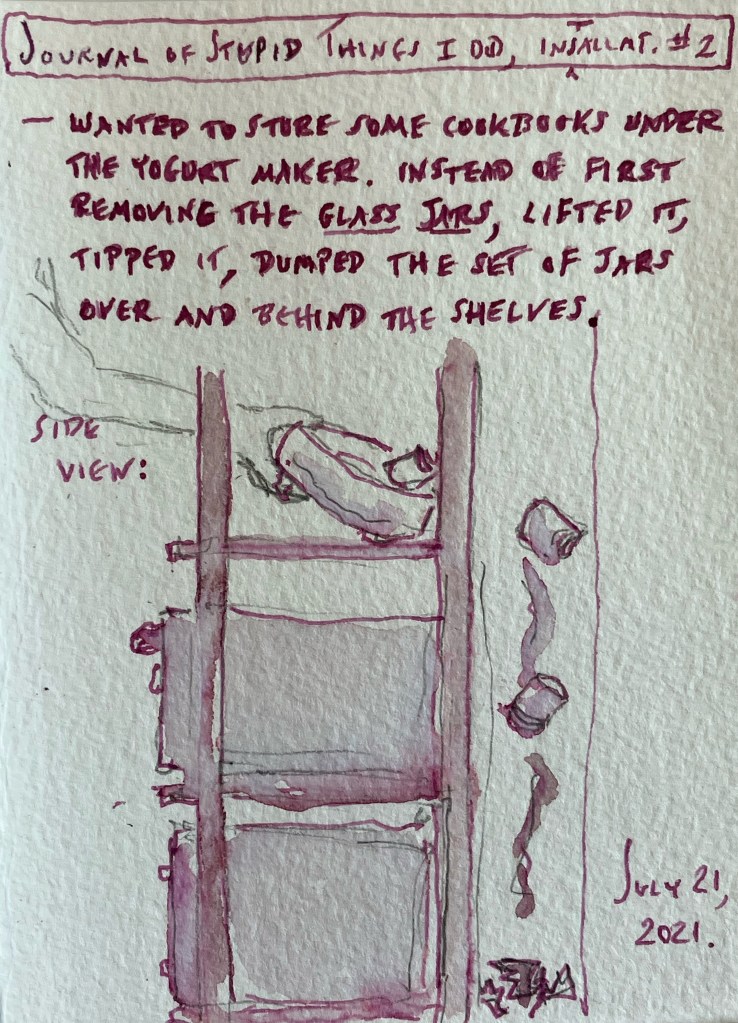 JOURNAL OF STUPID THINGS I DID, INSTALLAT. #2
— WANTED TO STORE SOME COOKBOOKS UNDER
THE YOGURT MAKER. INSTEAD OF FIRST
REMOVING THE GLASS JARS, LIFTED IT,
TIPPED IT, DUMPED THE SET OF JARS
OVER AND BEHIND THE SHELVES.
SIDE
VIEW:
JULY 21,
2021.